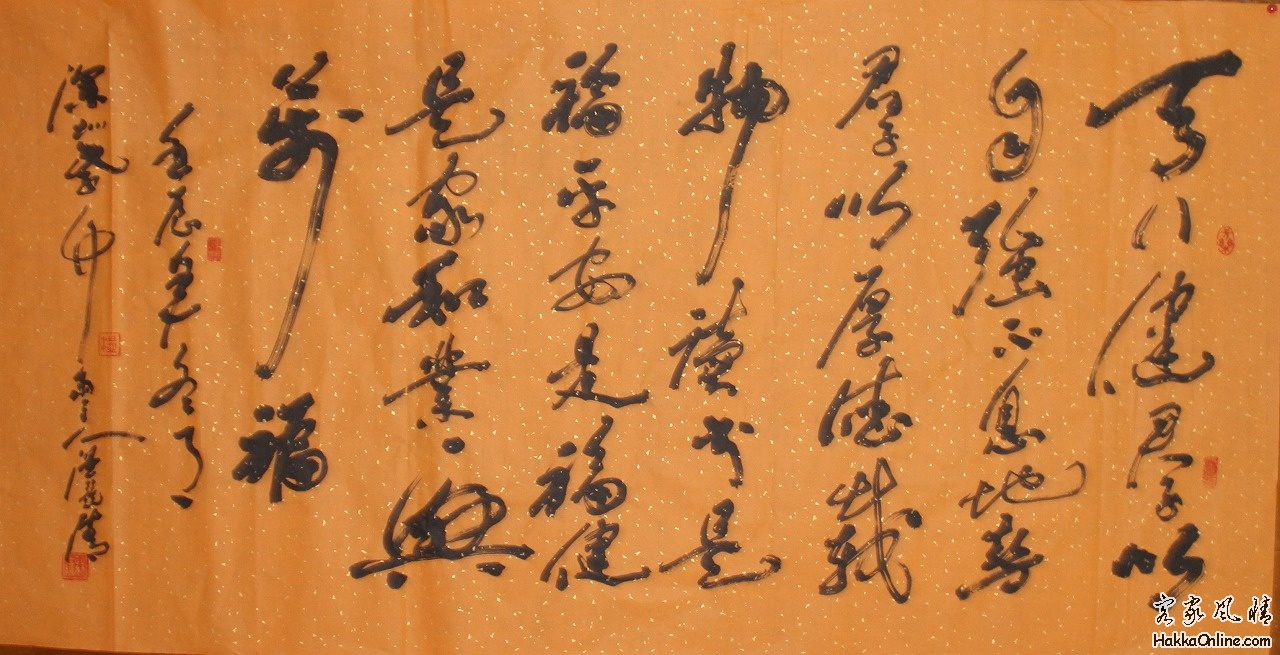 天行健君子以
自强不息地势
君子以厚德载
物读书是
福平安是福健
是家和业兴
万福
壬辰年冬月
深圳
客家风情
HakkaOnline.com